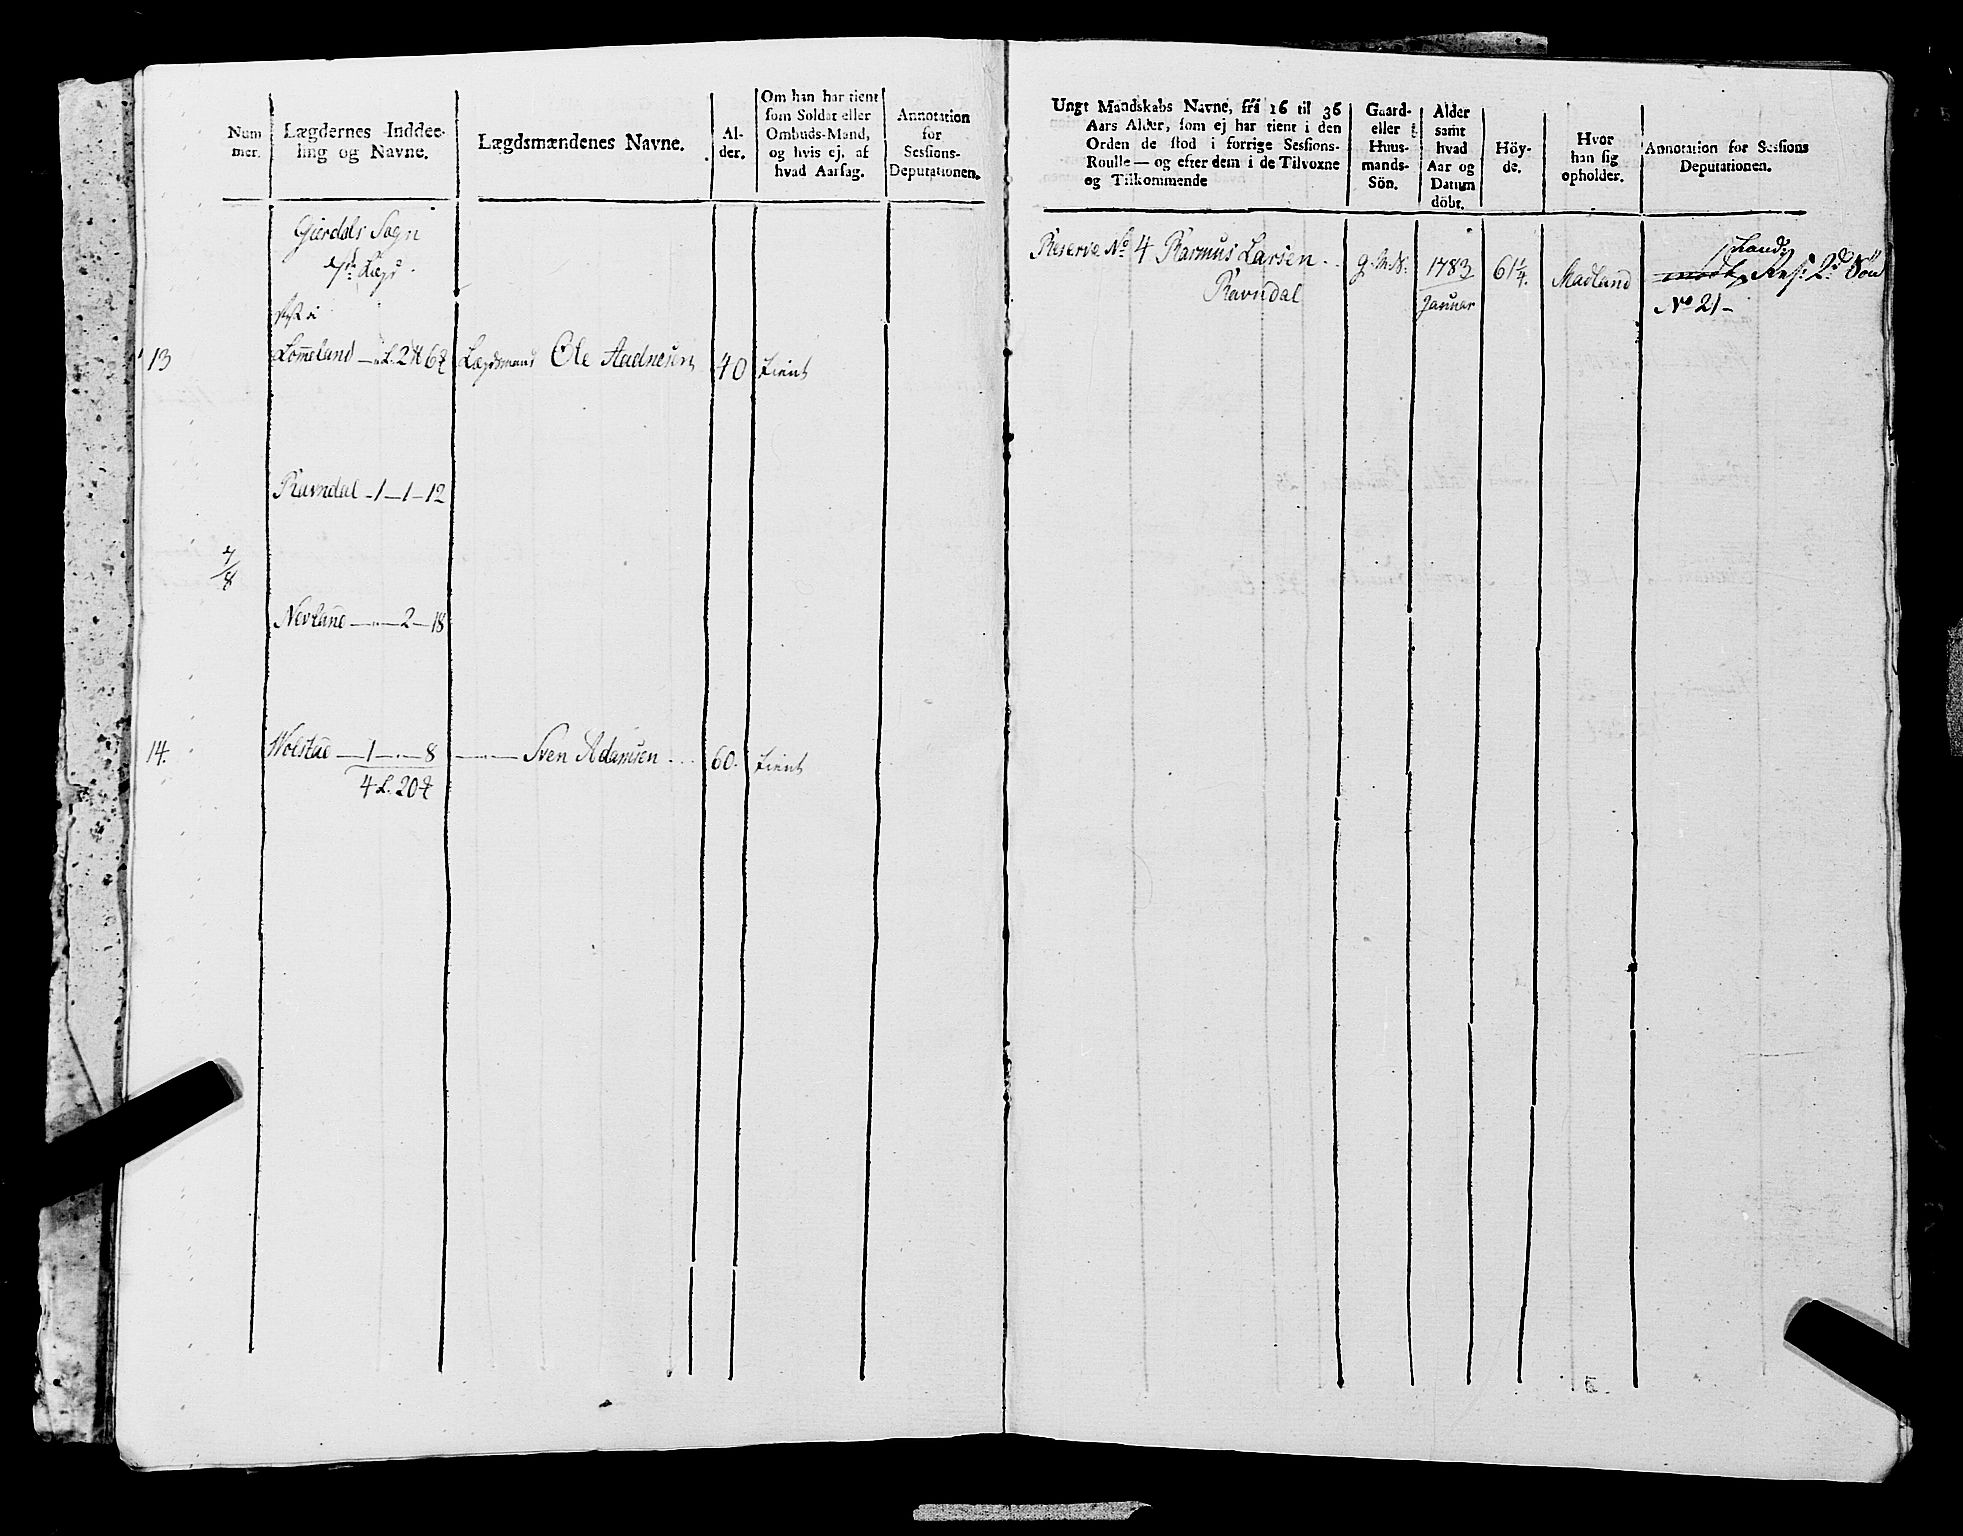 Num
mer.
Lægdernes Inddee-
ling og Navne.
Lægdsmændenes Navne.
Al-
der.
Om han har tient
som Soldat eller
Ombuds-Mand,
og hvis ej, af
hvad Aarsag.
Annotation
for
Sessions-
Deputationen.
Giesdals Sogn
7de Lægd.
13 Lomeland L. 2 # 6 Lægdsmand Ole Aadnesen 40 tient
Ravndal - 1 - 1 - 12
7/8
Nevland 2 - 18
14. Wolstad 1 8 Sven Adamsen 60. tient
4 L. 20
Ungt Mandskabs Navne, frå 16 til 36
Aars Alder, som ej har tient i den
Orden de stod i forrige Sessions-
Roulle — og efter dem i de Tilvoxne
og Tilkommende
Gaard-
eller
Huus-
mands-
Sön.
Alder
samt
hvad
Aar og
Datum
döbt.
Höy-
de.
Hvor
han sig
opholder.
Annotation for Sessions
Deputationen.
Reserve No 4 Rasmus Larsen g. M. N. 1783 61 1/4. Madland
Ravndal Januar No 21 -